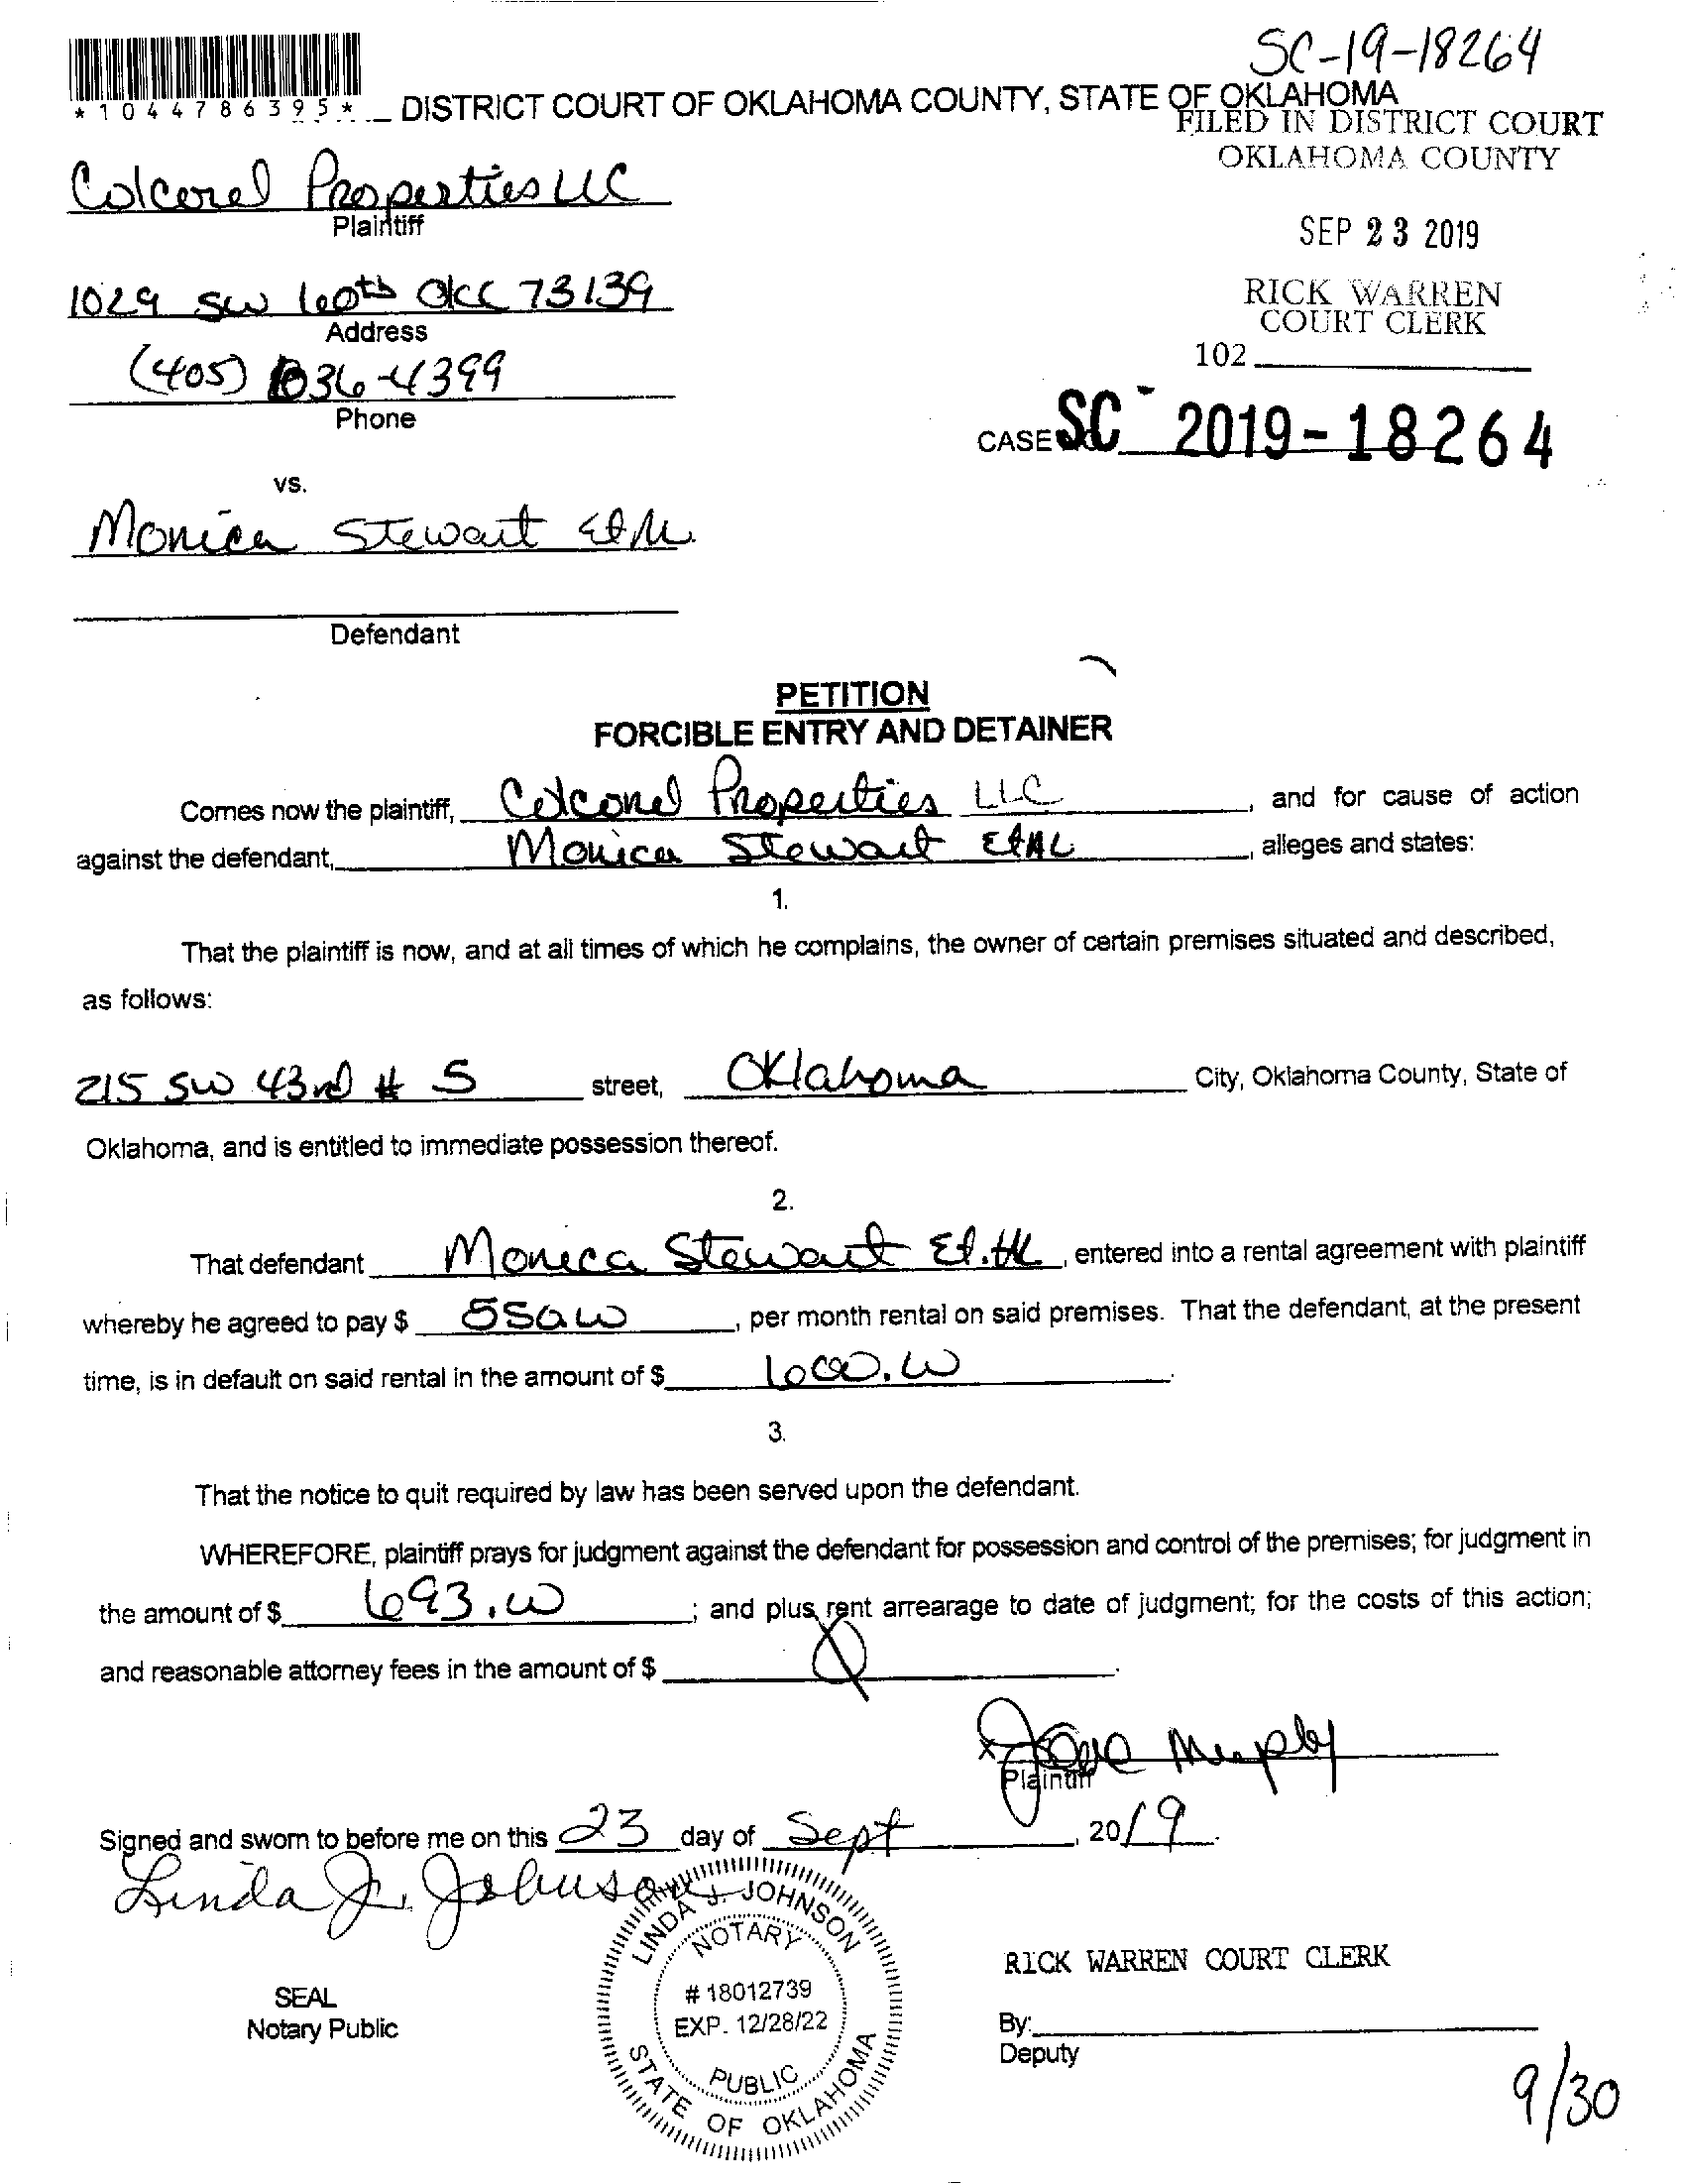 SC-19-18264
*1044786395*
DISTRICT COURT OF OKLAHOMA COUNTY, STATE OF OKLAHOMA
FILED IN DISTRICT COURT
OKLAHOMA COUNTY
Properties LLC
Plaintiff
SEP 23 2019
1029 SW 60th OKC 73139
Address
RICK WARREN
COURT CLERK
102
(405) 636-4399
Phone
CASE SC - 2019-18264
vs.
Monica Stewart Et Al.
Defendant
PETITION
FORCIBLE ENTRY AND DETAINER
Comes now the plaintiff, Properties LLC, and for cause of action
against the defendant, Monica Stewart Et AL, alleges and states:
1.
That the plaintiff is now, and at all times of which he complains, the owner of certain premises situated and described,
as follows:
215 SW 43rd # S street, Oklahoma City, Oklahoma County, State of
Oklahoma, and is entitled to immediate possession thereof.
2.
That defendant Monica Stewart Et. Al, entered into a rental agreement with plaintiff
whereby he agreed to pay $ , per month rental on said premises. That the defendant, at the present
time, is in default on said rental in the amount of $ 600.00.
3.
That the notice to quit required by law has been served upon the defendant.
WHEREFORE, plaintiff prays for judgment against the defendant for possession and control of the premises; for judgment in
the amount of $ 693.00; and plus rent arrearage to date of judgment; for the costs of this action;
and reasonable attorney fees in the amount of $ .
x Murphy
Plaintiff
Signed and sworn to before me on this 23 day of Sept, 2019.
Linda J. Johnson
LINDA J. JOHNSON
NOTARY
# 18012739
EXP. 12/28/22
PUBLIC
STATE OF OKLAHOMA
SEAL
Notary Public
RICK WARREN COURT CLERK
By:
Deputy
9/30